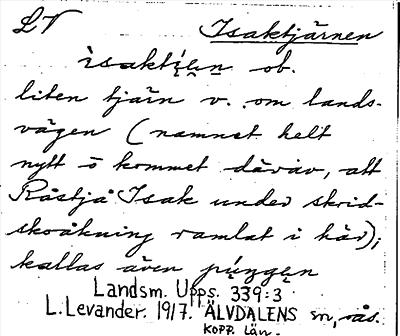 LV Isaktjärnen
ob.
liten tjärn v. om lands-
vägen (namnet helt
nytt o kommet därav, att
Råstjå Isak under skrid-
skoåkning ramlat i här);
kallas även
Landsm. Upps. 339:3
L. Levander. 1917. ÄLVDALENS sn,
KOPP. län.